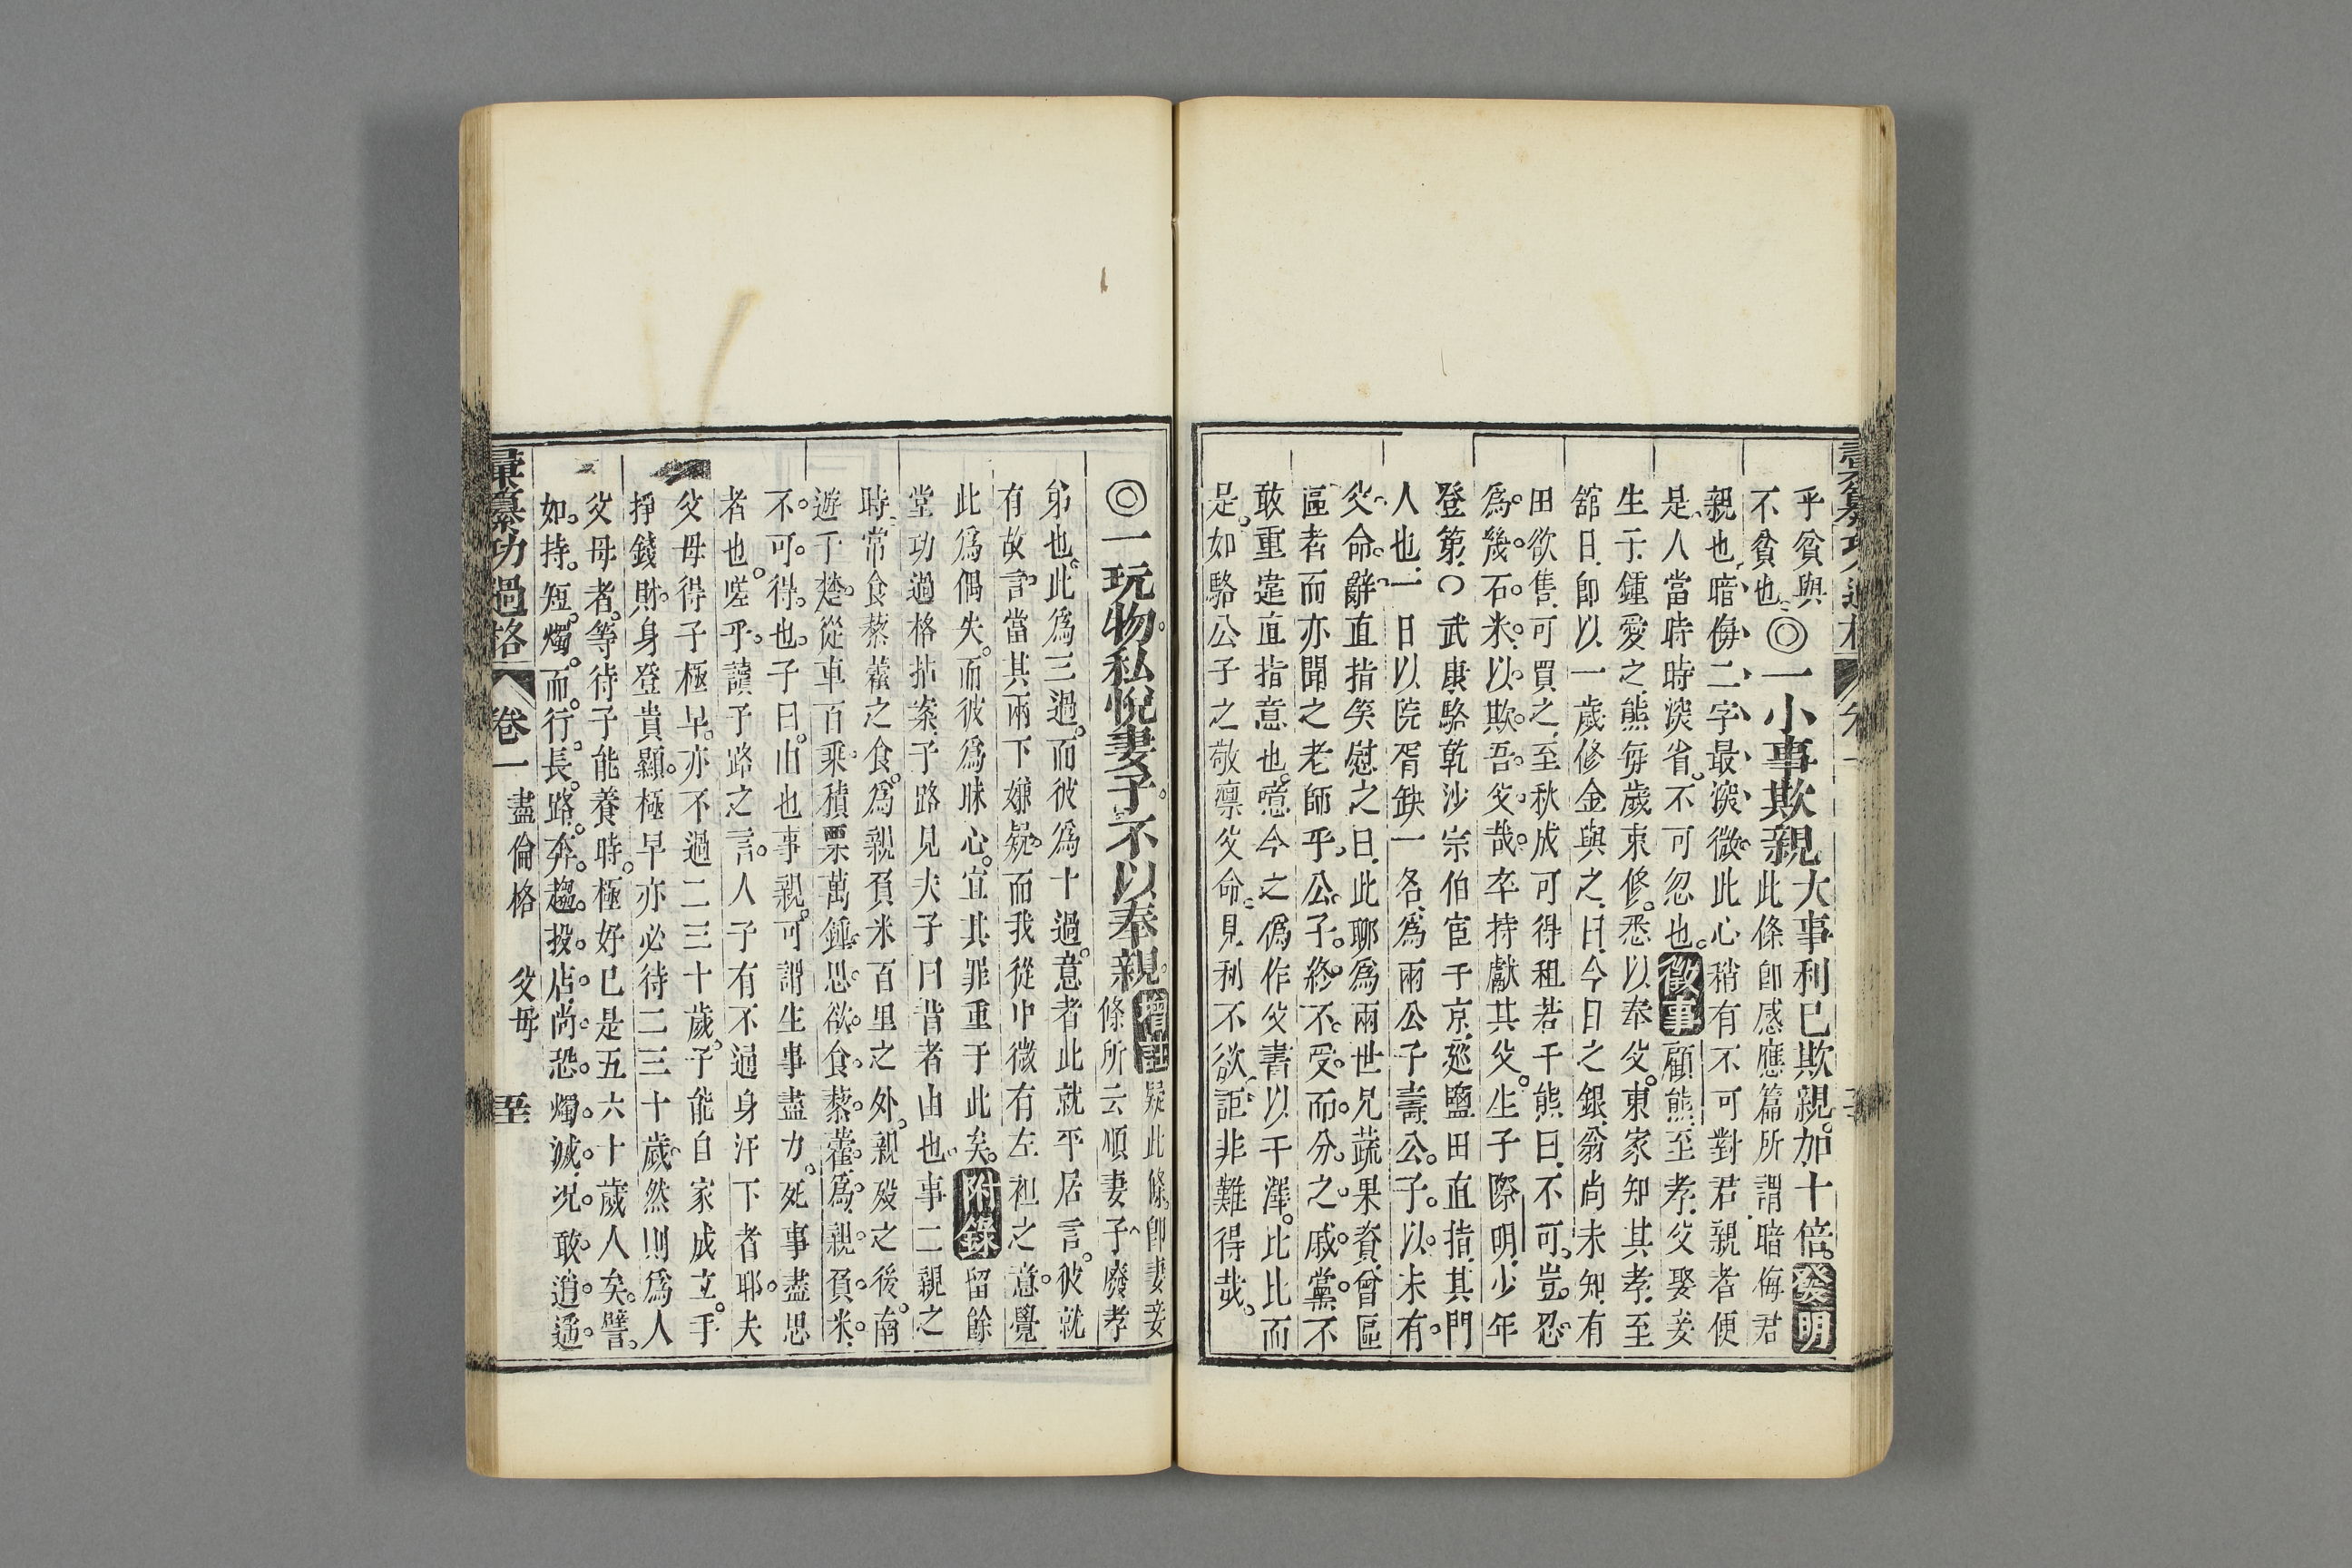 彙纂功過格
乎貧與
不貧也◎一小事欺親大事利己欺親加十倍發明
此條卽感應篇所謂暗侮君
親也暗侮二字最深微此心稍有不可對君親者便
是人當時時深省不可忽也徵事顧熊至孝父娶妾
生子鍾愛之熊每歲束修悉以奉父東家知其孝至
舘日卽以一歲修金與之日今日之銀翁尚未知有
田欲售可買之至秋成可得租若干熊曰不可豈忍
爲幾石米以欺吾父哉卒持獻其父生子際明少年
登第○武康駱乾沙宗伯宦于京廵鹽田直指其門
人也一日以院胥缺一名爲兩公子壽公子以未有
父命辭直指笑慰之曰此聊爲兩世兄蔬果資曾區
區者而亦聞之老師乎公子終不受而分之戚黨不
敢重違直指意也噫今之僞作父書以干澤比比而
是如駱公子之敬凛父命見利不欲詎非難得哉
◎一玩物私悅妻子不以奉親增註疑此條卽妻妾
條所云順妻子廢孝
弟也此爲三過而彼爲十過意者此就平居言彼就
有故言當其兩下嫌疑而我從中微有左袒之意覺
此爲偶失而彼爲昧心宜其罪重于此矣附錄留餘
堂功過格拈案子路見夫子曰昔者由也事二親之
時常食藜藿之食爲親負米百里之外親歿之後南
遊于楚從車百乘積粟萬鍾思欲食藜藿爲親負米
不可得也子曰由也事親可謂生事盡力死事盡思
者也嗟乎讀子路之言人子有不通身汗下者耶夫
父母得子極早亦不過二三十歲子能自家成立手
掙錢財身登貴顯極早亦必待二三十歲然則爲人
父母者等待子能養時極好已是五六十歲人矣譬
如持短燭而行長路奔趨投店尚恐燭滅况敢逍遥
彙纂功過格 卷一 盡倫格 父母 至